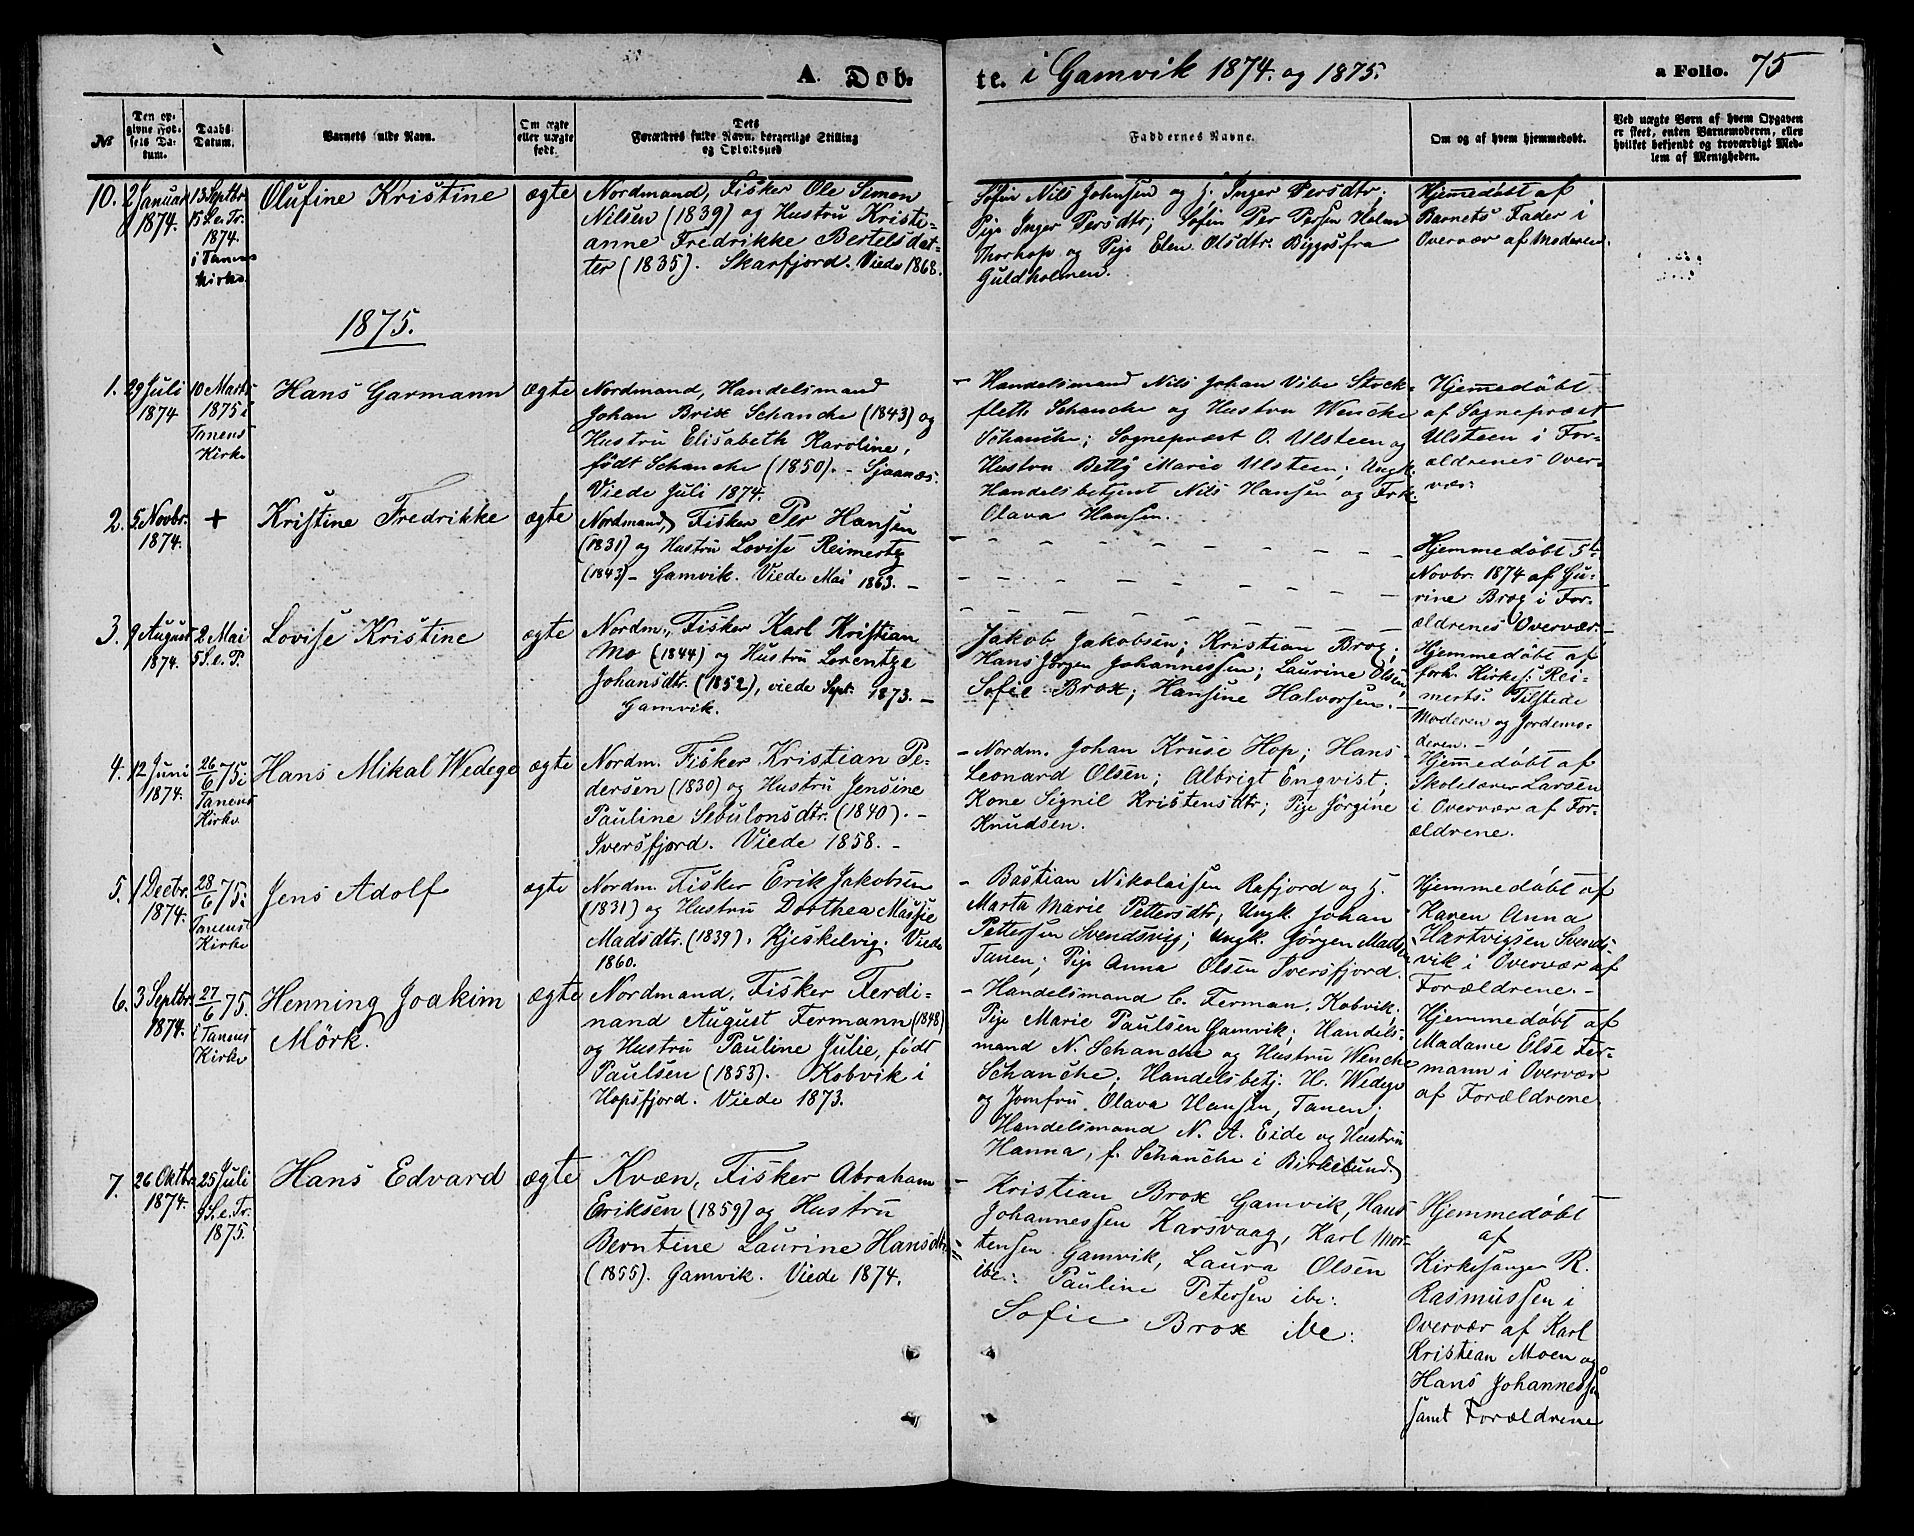 A. Døb-
te. i Gamvik 1874. og 1875.
a Folio. 75
№
Den op-
givne Fød-
sels Da-
tum.
Daabs
Datum.
Barnets fulde Navn.
Om ægte
eller uægte
født.
Dets
Forældres fulde Navn, borgerlige Stilling
og Opholdssted
Faddernes Navne.
Om og af hvem hjemmedøbt.
Ved uægte Børn af hvem Opgaven
er skeet, enten Barnemoderen, eller
hvilket bekjendt og troværdigt Med-
lem af Menigheden.
10.
2 Januar
1874.
13 Septbr
15 S. e. Tr.
1874.
i Tanens
Kirke.
Olufine Kristine
ægte
Nordmand, Fisker Ole Simon
Nilsen (1839) og Hustru Kristi-
anne Fredrikke Bertelsdat-
ter (1835). Skarfjord. Viede 1868.
Søfin Nils Johnsen og H. Inger Persdtr;
Pige Inger Persdtr; Søfin Per Persen Holm
Thorhop og Pige Elen Olsdtr. Biggosfra
Guldholmen.
Hjemmedøbt af
Barnets Fader i
Overvær af Moderen.
1875.
1.
29 Juli
1874
10 Marts
1875 i
Tanens
Kirke
Hans Garmann
ægte
Nordmand, Handelsmand
Johan Brix Schanche (1843) og
Hustru Elisabeth Karoline,
født Schanche (1850). - Sjaanæs.
Viede Juli 1874.
- Handelsmand Nils Johan Vibe Stock-
fleth Schanche og Hustru Wenche
Schanche; Sognepræst O. Ulsteen og
Hustru Betty Marie Ulsteen; Ungk.
Handelsbetjent Nils Hansen og Frk.
Olava Hansen.
Hjemmedøbt
af Sognepræst
Ulsteen i For-
ældrenes Over-
vær.
2.
5 Novbr.
1874.
+
Kristine Fredrikke
ægte
Nordmand, Fisker Per Hansen
(1831) og Hustru Lovise Reimertz
(1843) - Gamvik. Viede Mai 1863. -
Hjemmedøbt 5te
Novbr. 1874 af Gu-
rine Brog i For-
ældrenes Overvær.
3.
9 August
1874.
2 Mai
5 S. e. P.
Lovise Kristine
ægte
Nordm., Fisker Karl Kristian
Mo (1844) og Hustru Lorentze
Johansdtr. (1852), viede Sept. 1873. -
Gamvik.
Jakob Jakobsen; Kristian Brog;
Hans Jørgen Johannessen; Laurine Olsen;
Sofie Brox; Hansine Halvorsen. -
Hjemmedøbt af
forh. Kirkes: Rei-
merts. Tilstede
Moderen og Jordemo-
deren. -
4.
12 Juni
1874.
26/6 75 i
Tanens
Kirke
Hans Mikal Wedege
ægte
Nordm. Fisker Kristian Pe-
dersen (1830) og Hustru Jensine
Pauline Sebulonsdtr. (1840). -
Iversfjord. Viede 1858. -
- Nordm. Johan Kruse Hop; Hans
Leonard Olsen; Albrigt Enqvist;
Kone Signil Kristensdtr; Pige Jørgine
Knudsen.
Hjemmedøbt af
Skolelærer Larsen
i Overvær af For-
ældrene.
5.
1 Decbr.
1874.
28/6 75 i
Tanens
Kirke
Jens Adolf
ægte
Nordm. Fisker Erik Jakobsen
(1831) og Hustru Dorthea Massie
Madsdtr. (1839). Kjeskelvig. Viede
1860.
- Bastian Nikolaisen Rafjord og H.
Marta Marie Pettersdtr; Ungk. Johan
Pettersen Svendsvig; Ungk. Jørgen Madsen
Tanen; Pige Anna Olsen Iversfjord.
Hjemmedøbt af
Karen Anna
Hartvigsen Svends-
vik i Overvær af
Forældrene. -
6.
3 Septbr.
1874.
27/6 75.
i Tanens
Kirke
Henning Joakim
Mörk.
ægte
Nordmand, Fisker Ferdi-
nand August Fermann (1848)
og Hustru Pauline Julie, født
Paulsen (1853). Kobvik i
Hopsfjord. Viede 1873.
- Handelsmand C. Ferman, Kobvik;
Pige Marie Paulsen Gamvik; Handels-
mand N. Schanche og Hustru Wenche
Schanche; Handelsbetj. H. Wedege
og Jomfru Olava Hansen, Tanen;
Handelsmand N. A. Eide og Hustru
Hanna, f. Schanche i Birkelund.
Hjemmedøbt af
Madame Else Fer-
mann i Overvær
af Forældrene
7.
26 Oktbr.
1874.
25 Juli
9 S. e. Tr.
1875.
Hans Edvard
ægte
Kvæn, Fisker Abraham
Eriksen (1859) og Hustru
Berntine Laurine Hansdtr
(1855). Gamvik. Viede 1874.
- Kristian Brox Gamvik, Hans
Johannessen Karsvaag, Karl Mor-
tensen Gamvik, Laura Olsen
ibe: Pauline Petersen ibe:
Sofie Brox ibe:
Hjemmedøbt
af
Kirkesanger R.
Rasmussen i
Overvær af Karl
Kristian Moen og
Hans Johannessen
samt Forældrene